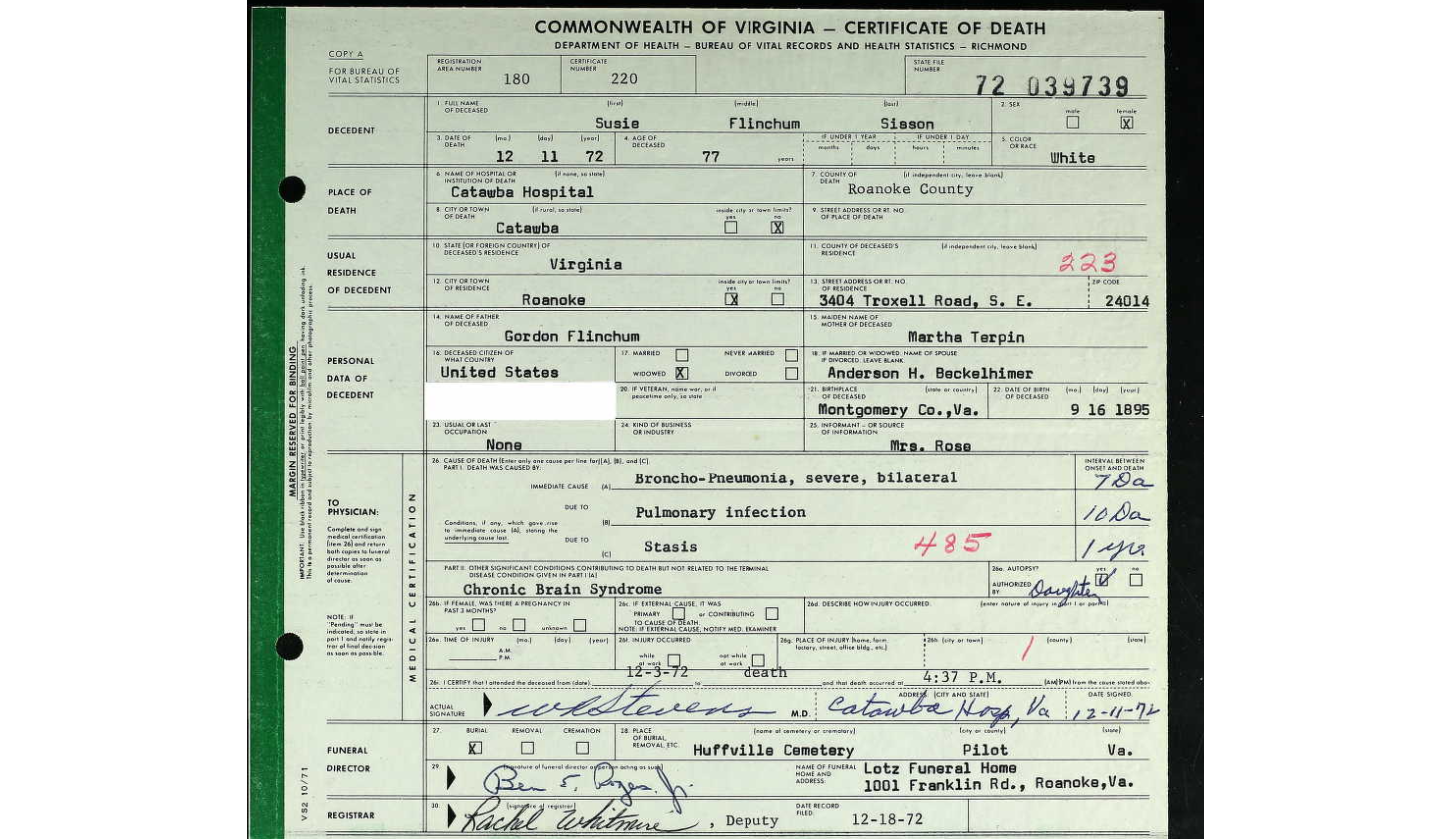 COMMONWEALTH OF VIRGINIA — CERTIFICATE OF DEATH
DEPARTMENT OF HEALTH — BUREAU OF VITAL RECORDS AND HEALTH STATISTICS — RICHMOND
COPY A
FOR BUREAU OF VITAL STATISTICS
REGISTRATION AREA NUMBER 180
CERTIFICATE NUMBER 220
STATE FILE NUMBER 72 039739
DECEDENT
1. FULL NAME OF DECEASED (first) (middle) (last)
Susie Flinchum Sisson
2. SEX male female X
3. DATE OF DEATH (mo.) (day) (year)
12 11 72
4. AGE OF DECEASED 77 years
IF UNDER 1 YEAR months days
IF UNDER 1 DAY hours minutes
5. COLOR OR RACE White
PLACE OF DEATH
6. NAME OF HOSPITAL OR INSTITUTION OF DEATH (if none, so state)
Catawba Hospital
7. COUNTY OF DEATH (if independent city, leave blank)
Roanoke County
8. CITY OR TOWN OF DEATH (if rural, so state) inside city or town limits? yes no X
Catawba
9. STREET ADDRESS OR RT. NO. OF PLACE OF DEATH
USUAL RESIDENCE OF DECEDENT
10. STATE (OR FOREIGN COUNTRY) OF DECEASED'S RESIDENCE
Virginia
11. COUNTY OF DECEASED'S RESIDENCE (if independent city, leave blank)
223
12. CITY OR TOWN OF RESIDENCE inside city or town limits? yes X no
Roanoke
13. STREET ADDRESS OR RT. NO. OF RESIDENCE ZIP CODE
3404 Troxell Road, S. E. 24014
PERSONAL DATA OF DECEDENT
14. NAME OF FATHER OF DECEASED
Gordon Flinchum
15. MAIDEN NAME OF MOTHER OF DECEASED
Martha Terpin
16. DECEASED CITIZEN OF WHAT COUNTRY
United States
17. MARRIED NEVER MARRIED
WIDOWED X DIVORCED
18. IF MARRIED OR WIDOWED, NAME OF SPOUSE IF DIVORCED, LEAVE BLANK.
Anderson H. Beckelhimer
20. IF VETERAN, name war, or if peacetime only, so state
21. BIRTHPLACE OF DECEASED (state or country)
Montgomery Co.,Va.
22. DATE OF BIRTH OF DECEASED (mo.) (day) (year)
9 16 1895
23. USUAL OR LAST OCCUPATION
None
24. KIND OF BUSINESS OR INDUSTRY
25. INFORMANT – OR SOURCE OF INFORMATION
Mrs. Rose
MARGIN RESERVED FOR BINDING
TO PHYSICIAN:
Complete and sign medical certification (item 26) and return both copies to funeral director as soon as possible after determination of cause.
NOTE: If "Pending" must be indicated, so state in part I and notify registrar of final decision as soon as possible.
MEDICAL CERTIFICATION
26. CAUSE OF DEATH (Enter only one cause per line for (A), (B), and (C)
PART I. DEATH WAS CAUSED BY:
INTERVAL BETWEEN ONSET AND DEATH
IMMEDIATE CAUSE (A) Broncho-Pneumonia, severe, bilateral 7 Da
DUE TO
Conditions, if any, which gave rise to immediate cause (A), stating the underlying cause last.
(B) Pulmonary infection 10 Da
DUE TO
(C) Stasis 485 1 yr
PART II. OTHER SIGNIFICANT CONDITIONS CONTRIBUTING TO DEATH BUT NOT RELATED TO THE TERMINAL DISEASE CONDITION GIVEN IN PART I (A)
Chronic Brain Syndrome
26a. AUTOPSY? yes no
AUTHORIZED BY: Daughter
26b. IF FEMALE, WAS THERE A PREGNANCY IN PAST 3 MONTHS?
yes no unknown
26c. IF EXTERNAL CAUSE, IT WAS
PRIMARY or CONTRIBUTING
TO CAUSE OF DEATH.
NOTE: IF EXTERNAL CAUSE, NOTIFY MED. EXAMINER
26d. DESCRIBE HOW INJURY OCCURRED. (enter nature of injury in part I or part II)
26e. TIME OF INJURY (mo.) (day) (year)
A.M.
P.M.
26f. INJURY OCCURRED
while at work not while at work
26g. PLACE OF INJURY (home, farm factory, street, office bldg., etc.)
26h. (city or town) (county) (state)
1
26i. I CERTIFY that I attended the deceased from (date) 12-3-72 to death and that death occurred at 4:37 P.M. (AM)(PM) from the cause stated above
ACTUAL SIGNATURE WR Stevens M.D.
ADDRESS (CITY AND STATE)
Catawba Hosp, Va
DATE SIGNED
12-11-72
FUNERAL DIRECTOR
27. BURIAL X REMOVAL CREMATION
28. PLACE OF BURIAL, REMOVAL, ETC. (name of cemetery or crematory) (city or county) (state)
Huffville Cemetery Pilot Va.
29. (signature of funeral director or person acting as such)
NAME OF FUNERAL HOME AND ADDRESS:
Lotz Funeral Home
1001 Franklin Rd., Roanoke,Va.
REGISTRAR
30. (signature of registrar)
Rachel Whitmire , Deputy
DATE RECORD FILED: 12-18-72
VS2 10/71